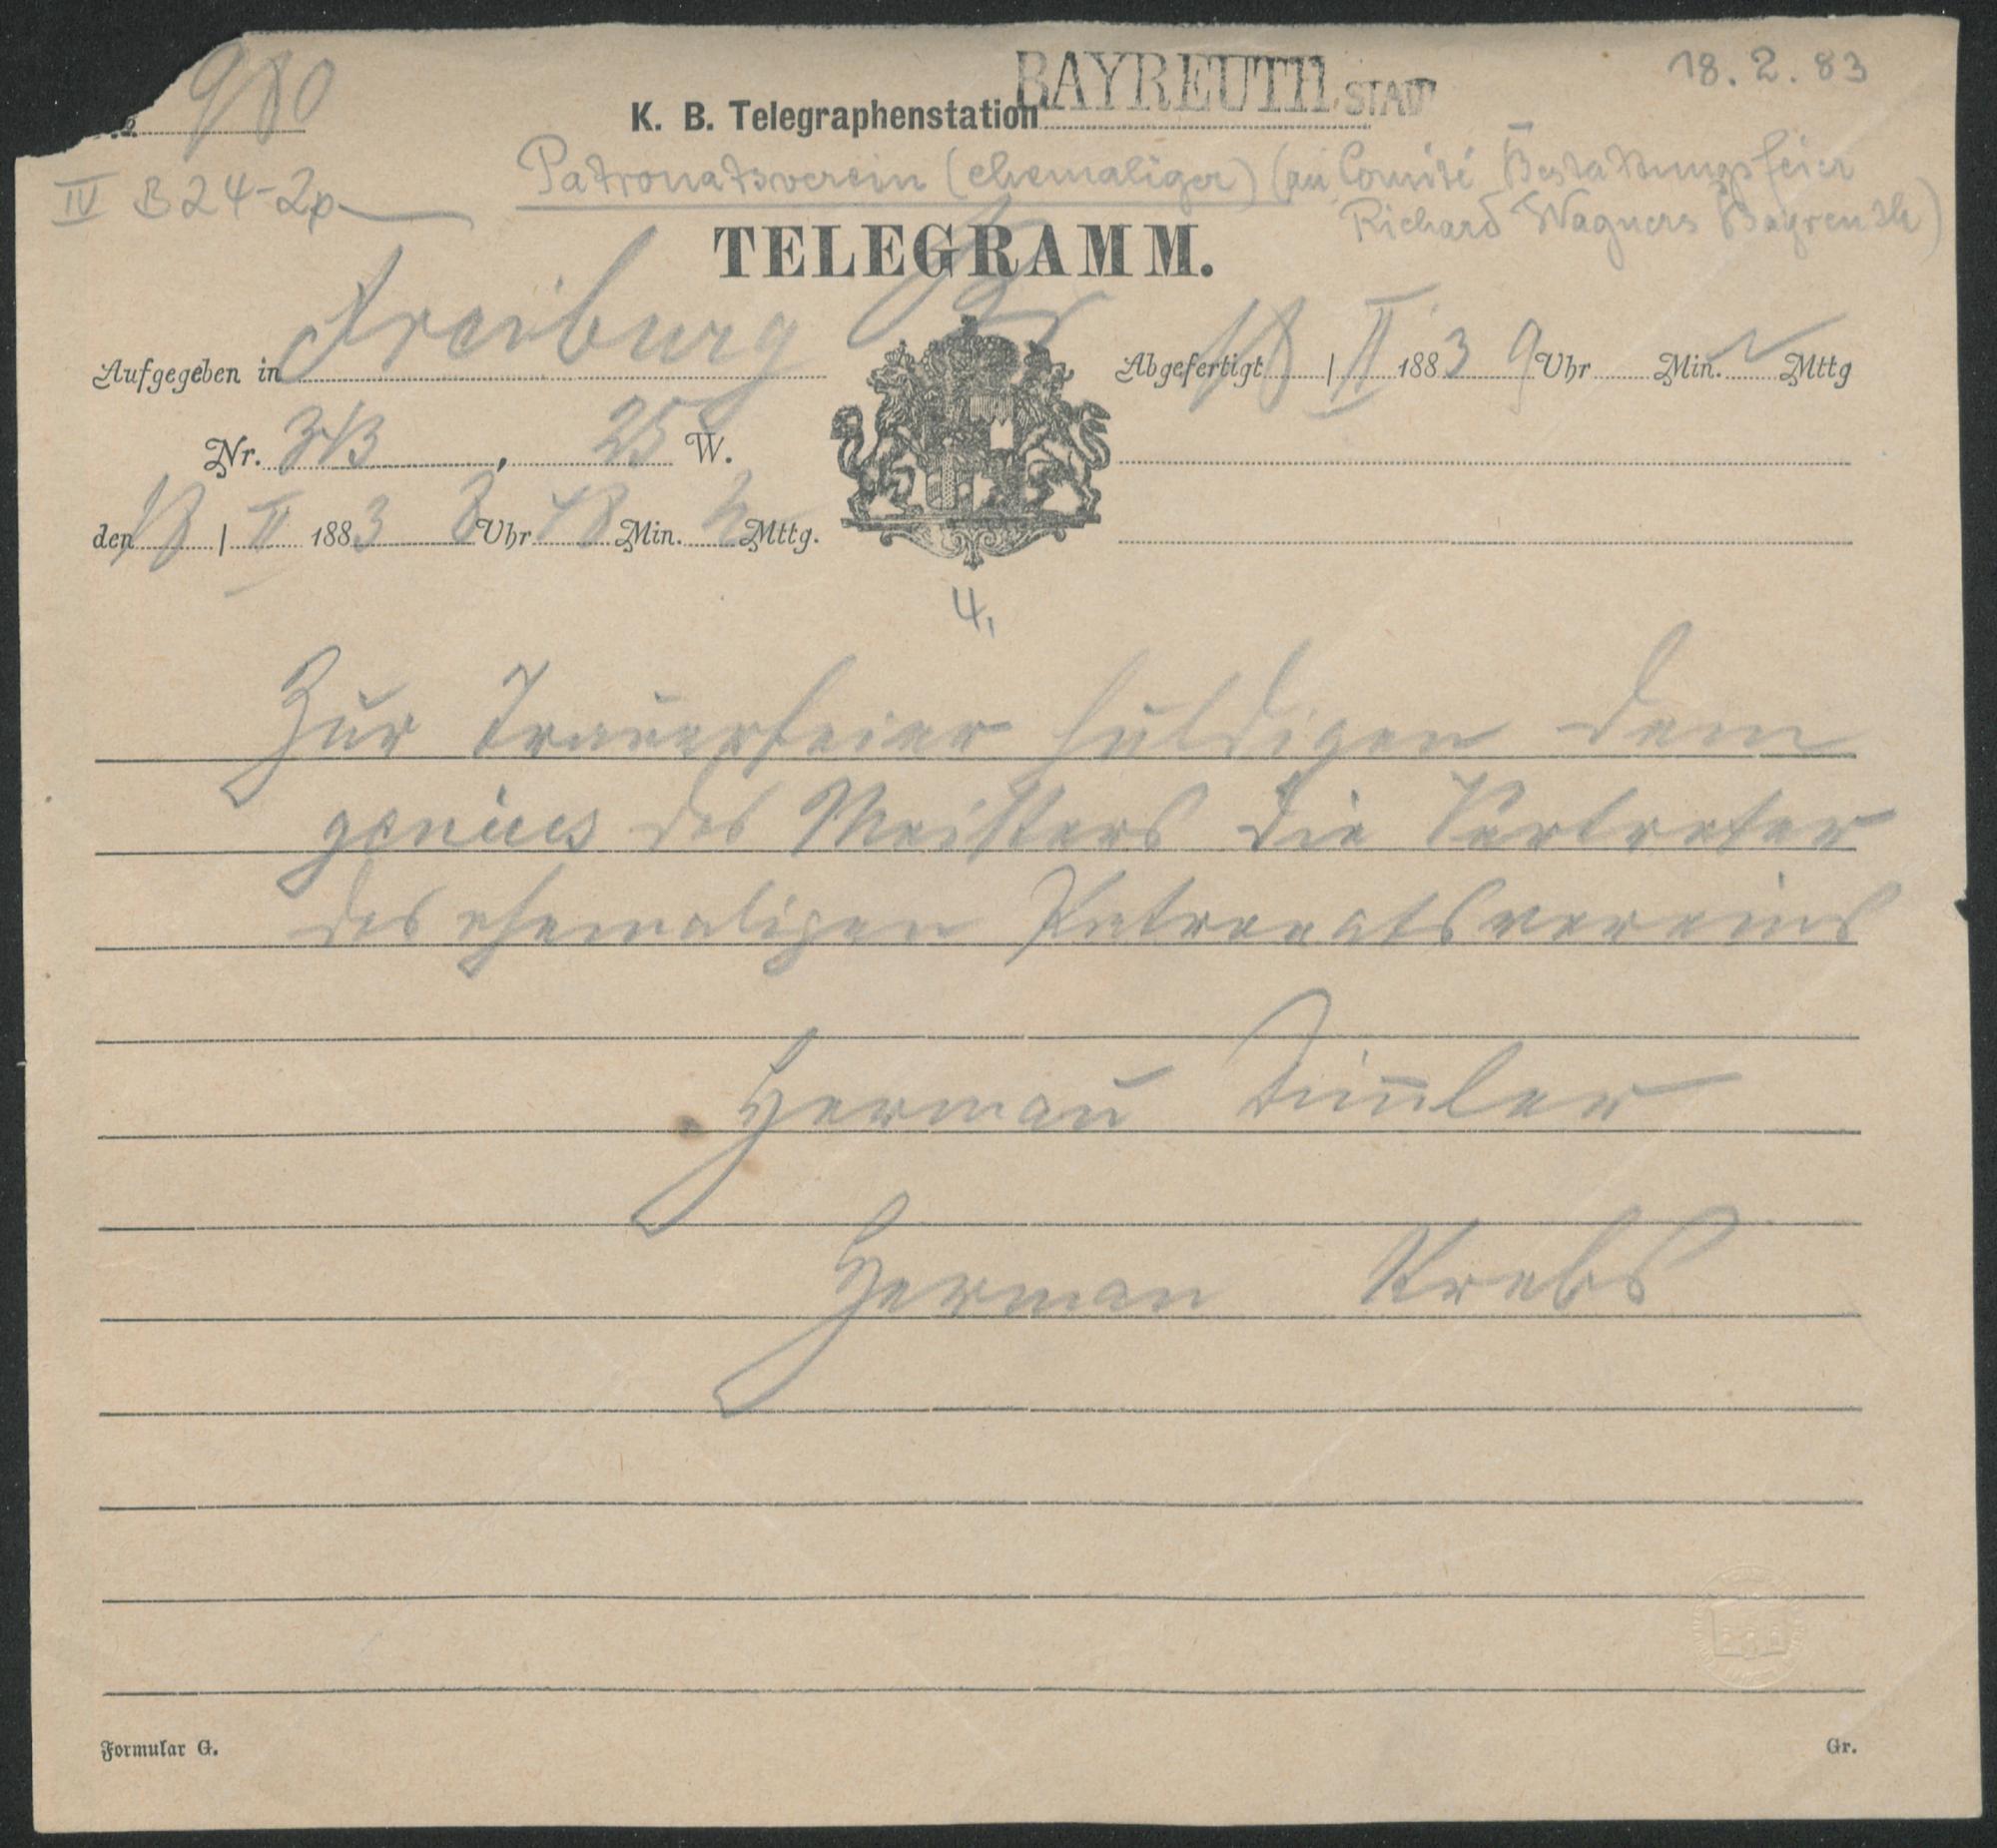 980
BAYREUTH STADT
18. 2. 83
K. B. Telegraphenstation
IV B 24-2p
Patronatsverein (ehemaliger) (an Comité Bestattungsfeier
Richard Wagners Bayreuth)
TELEGRAMM.
Aufgegeben in Freiburg
Abgefertigt 18 | II 1883 9 Uhr Min. Mttg
Nr. , 25 W.
den 18 | II 1883 8 Uhr 48 Min. Mttg.
4,
Zur Trauerfeier huldigen dem
genius des Meisters die Vertreter
des ehemaligen Patronatsvereins
Hermañ
Herman Krebs
Formular G.
Gr.